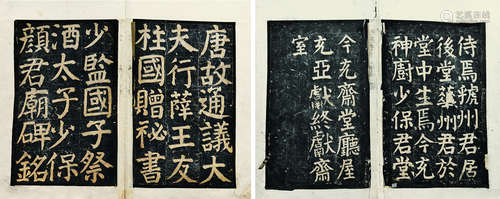 唐故通議大
夫行薛王友
柱國贈秘書
少監國子祭
酒太子少保
顏君廟碑銘
侍焉虢州君居
後堂華州君於
堂中生焉今充
神廚少保君堂
今充齋堂廳屋
充亞獻終獻齋
室